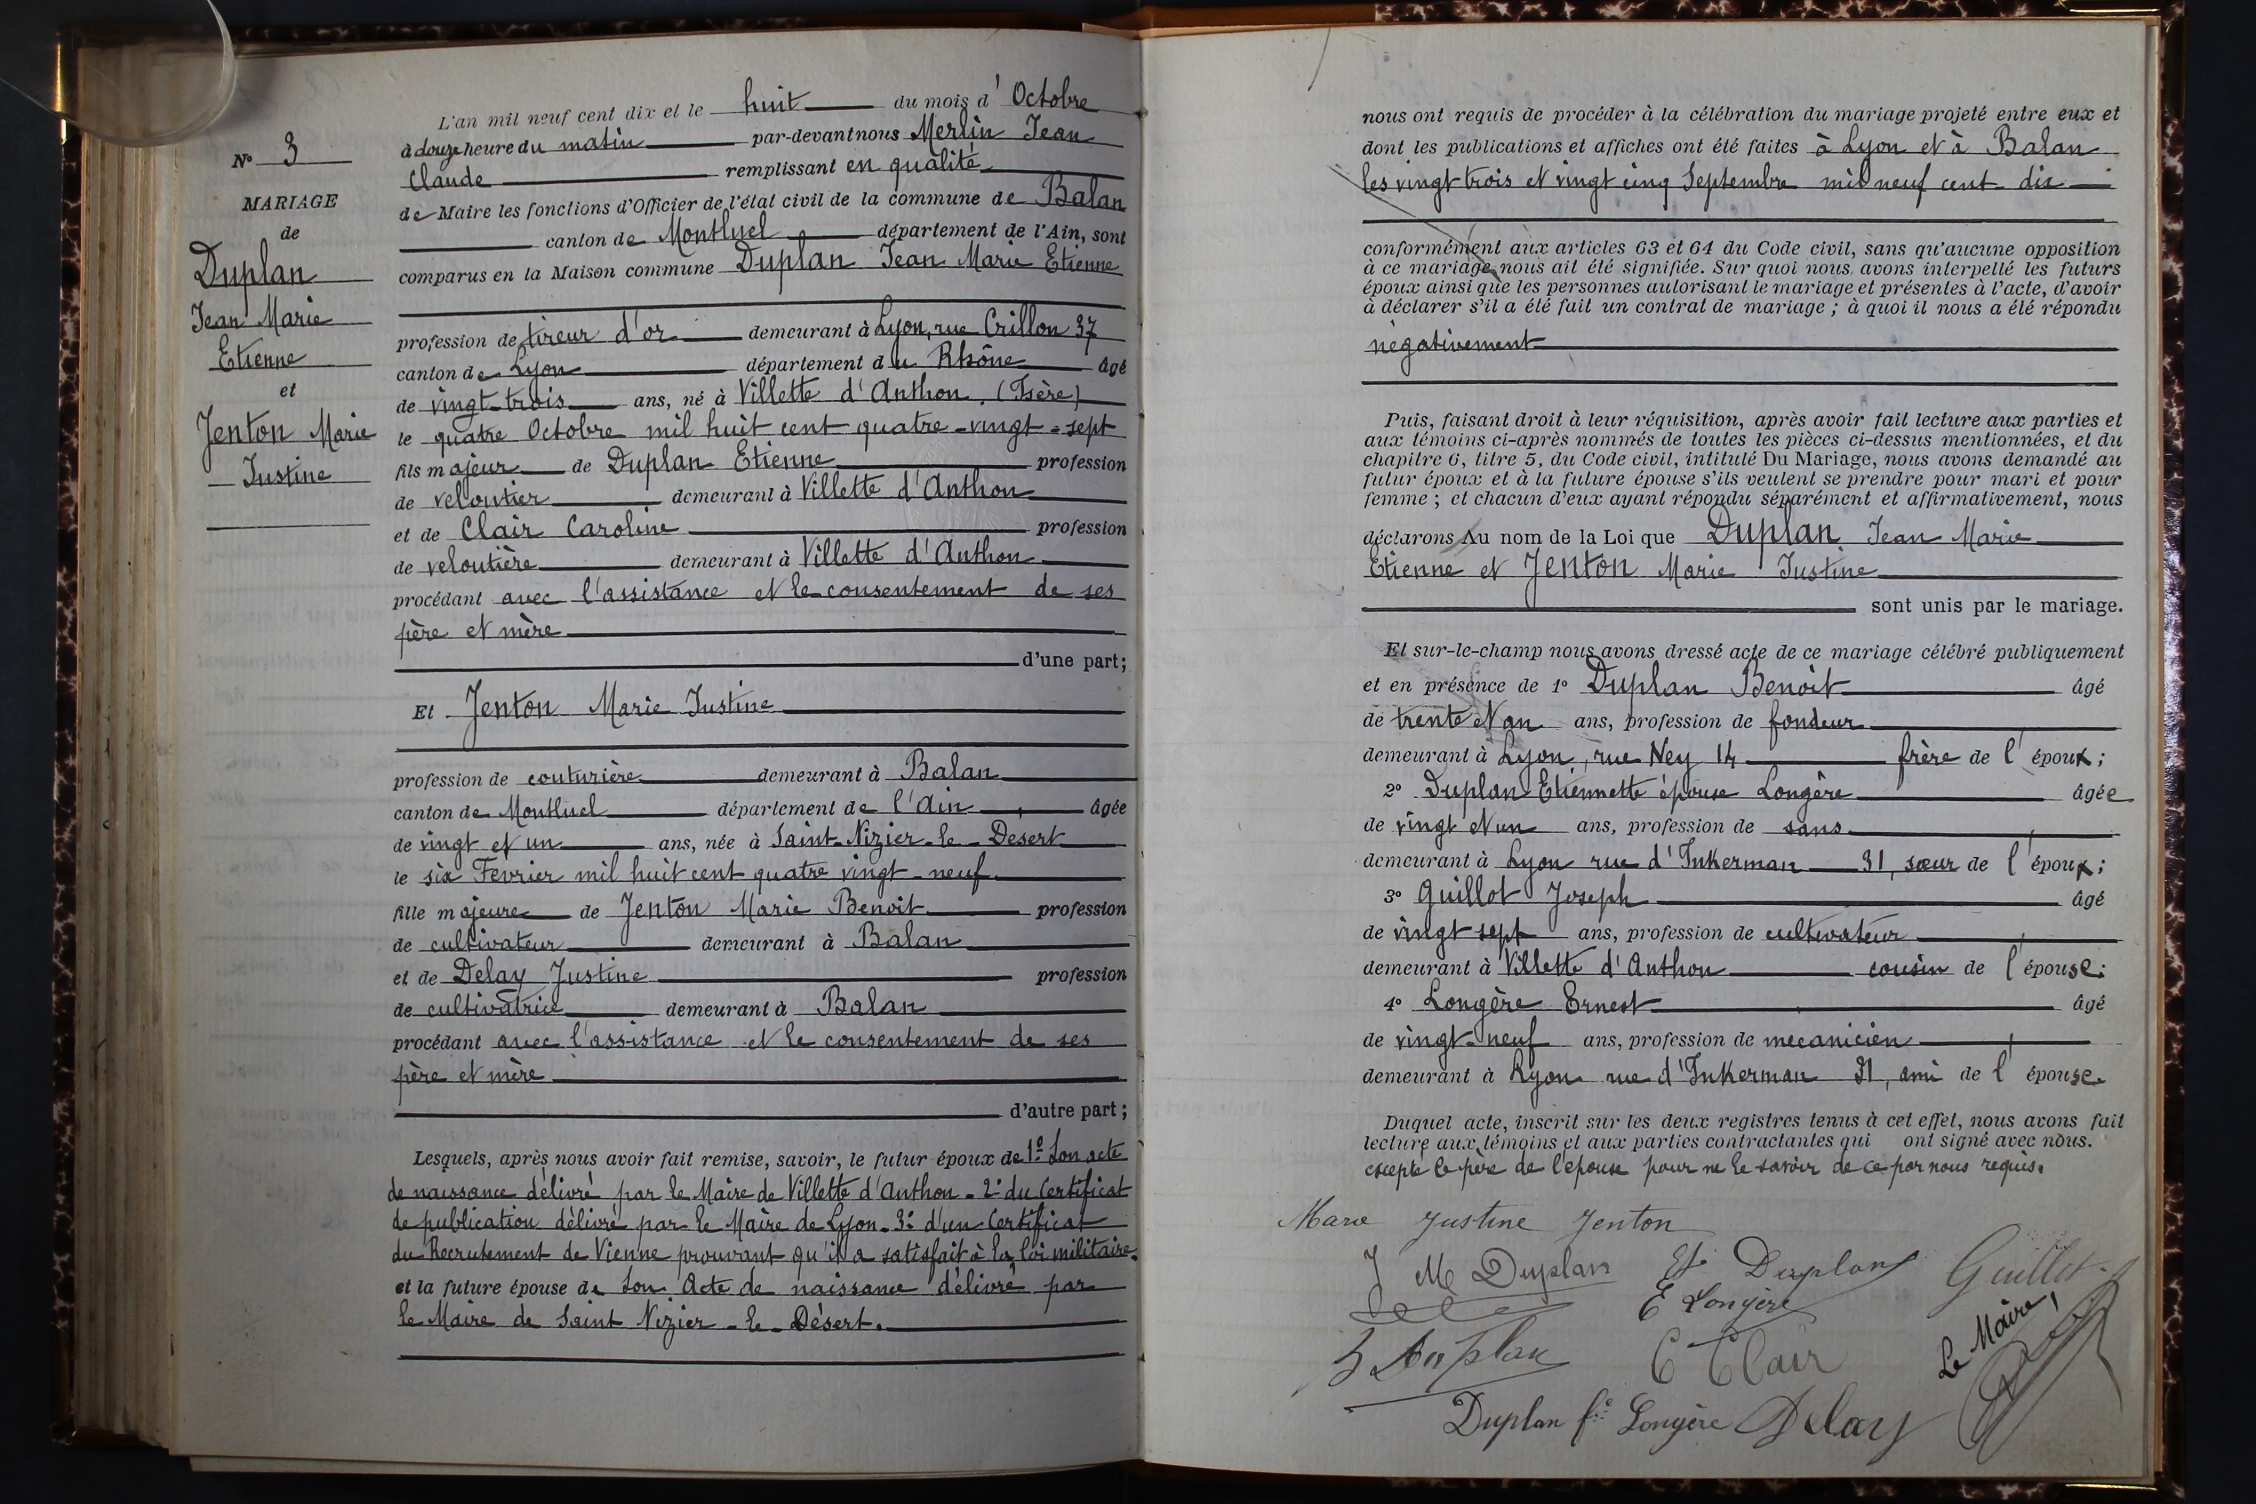 N° 3
MARIAGE
de
Duplan
Jean Marie
Etienne
et
Jenton Marie
Justine
L'an mil neuf cent dix et le huit du mois d'Octobre
à douze heure du matin par-devant nous Merlin Jean
Claude remplissant en qualité
de Maire les fonctions d'Officier de l'état civil de la commune de Balan
canton de Montluel département de l'Ain, sont
comparus en la Maison commune Duplan Jean Marie Etienne
profession de tireur d'or demeurant à Lyon, rue Crillon 37
canton de Lyon département du Rhône âgé
de vingt-trois ans, né à Villette d'Anthon. (Isère)
le quatre Octobre mil huit cent quatre-vingt-sept
fils majeur de Duplan Etienne profession
de veloutier demeurant à Villette d'Anthon
et de Clair Caroline profession
de veloutière demeurant à Villette d'Anthon
procédant avec l'assistance et le consentement de ses
père et mère
d'une part;
Et Jenton Marie Justine
profession de couturière demeurant à Balan
canton de Montluel département de l'Ain, âgée
de vingt et un ans, née à Saint-Nizier-le-Desert
le six Fevrier mil huit cent quatre vingt-neuf
fille majeure de Jenton Marie Benoit profession
de cultivateur demeurant à Balan
et de Delay Justine profession
de cultivatrice demeurant à Balan
procédant avec l'assistance et le consentement de ses
père et mère
d'autre part;
Lesquels, après nous avoir fait remise, savoir, le futur époux de 1° Son acte
de naissance délivré par le Maire de Villette d'Anthon - 2° du Certificat
de publication délivré par le Maire de Lyon - 3° d'un Certificat
du Recrutement de Vienne prouvant qu'il a satisfait à la loi militaire.
et la future épouse de Son Acte de naissance délivré par
le Maire de Saint Nizier-le-Désert.
nous ont requis de procéder à la célébration du mariage projeté entre eux et
dont les publications et affiches ont été faites à Lyon et à Balan
les vingt trois et vingt cinq Septembre mil neuf cent dix
conformément aux articles 63 et 64 du Code civil, sans qu'aucune opposition
à ce mariage nous ait été signifiée. Sur quoi nous avons interpellé les futurs
époux ainsi que les personnes autorisant le mariage et présentes à l'acte, d'avoir
à déclarer s'il a été fait un contrat de mariage; à quoi il nous a été répondu
négativement
Puis, faisant droit à leur réquisition, après avoir fait lecture aux parties et
aux témoins ci-après nommés de toutes les pièces ci-dessus mentionnées, et du
chapitre 6, titre 5, du Code civil, intitulé Du Mariage, nous avons demandé au
futur époux et à la future épouse s'ils veulent se prendre pour mari et pour
femme; et chacun d'eux ayant répondu séparément et affirmativement, nous
déclarons Au nom de la Loi que Duplan Jean Marie
Etienne et Jenton Marie Justine
sont unis par le mariage.
Et sur-le-champ nous avons dressé acte de ce mariage célébré publiquement
et en présence de 1° Duplan Benoît âgé
de trente et un ans, profession de fondeur
demeurant à Lyon, rue Ney 14 frère de l'époux;
2° Duplan Etiennette épouse Longère âgée
de vingt et un ans, profession de sans
demeurant à Lyon rue d'Inkerman 31, sœur de l'époux;
3° Guillot Joseph âgé
de vingt sept ans, profession de cultivateur,
demeurant à Villette d'Anthon cousin de l'épouse;
4° Longère Ernest âgé
de vingt-neuf ans, profession de mecanicien,
demeurant à Lyon rue d'Inkerman 31, ami de l'épouse.
Duquel acte, inscrit sur les deux registres tenus à cet effet, nous avons fait
lecture aux témoins et aux parties contractantes qui ont signé avec nous.
excepté le père de l'épouse pour ne le savoir de ce par nous requis.
Marie Justine Jenton
J M Duplan Et Duplan Guillot
E Longère
B Duplan C Clair
Le Maire,
Duplan fe Longère Delay